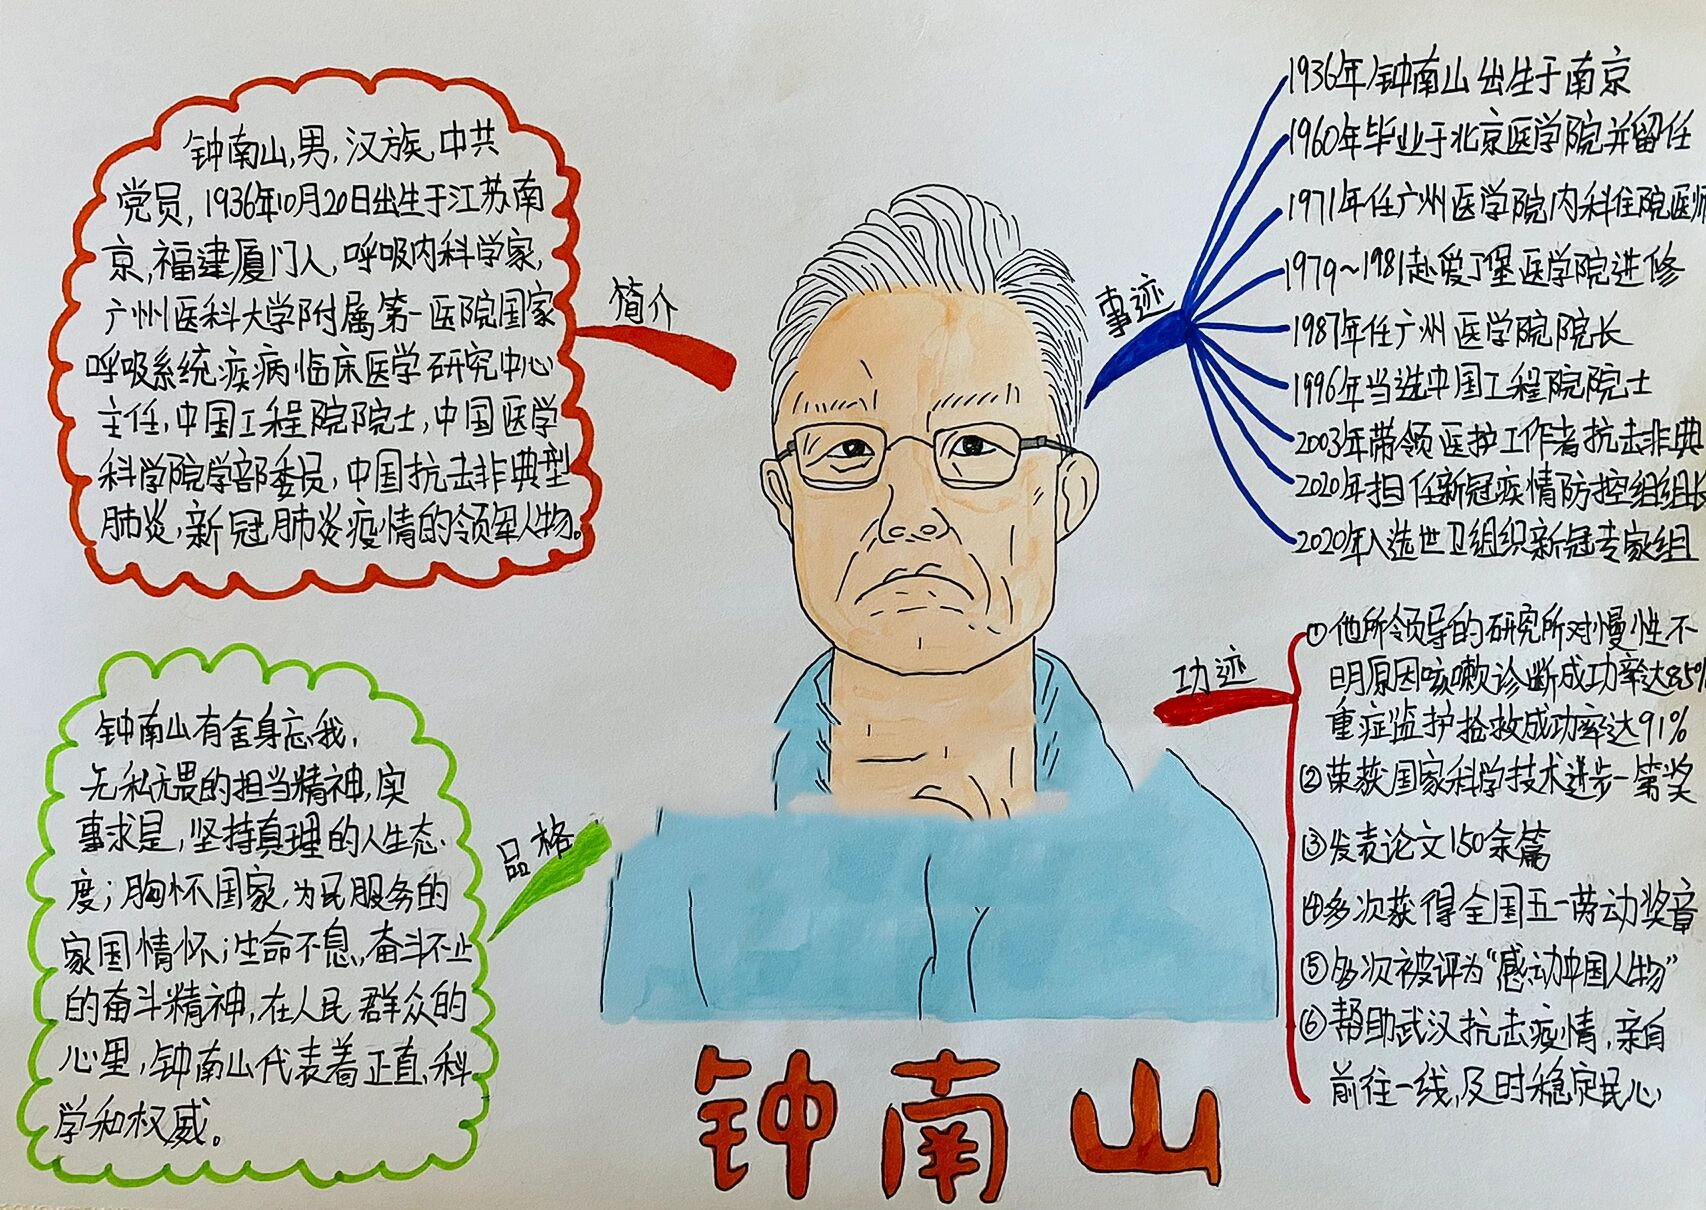 钟南山,男,汉族,中共
党员,1936年10月20日出生于江苏南
京,福建厦门人,呼吸内科学家,
广州医科大学附属第一医院国家
呼吸系统疾病临床医学研究中心
主任,中国工程院院士,中国医学
科学院学部委员,中国抗击非典型
肺炎,新冠肺炎疫情的领军人物。
简介
事迹
1936年钟南山出生于南京
1960年毕业于北京医学院并留任
1971年任广州医学院内科住院医师
1979~1981赴爱丁堡医学院进修
1987年任广州医学院院长
1996年当选中国工程院院士
2003年带领医护工作者抗击非典
2020年担任新冠疫情防控组组长
2020年入选世卫组织新冠专家组
功迹
①他所领导的研究所对慢性不
明原因咳嗽诊断成功率达85%
重症监护抢救成功率达91%
②荣获国家科学技术进步一等奖
③发表论文150余篇
④多次获得全国五一劳动奖章
⑤多次被评为“感动中国人物”
⑥帮助武汉抗击疫情,亲自
前往一线,及时稳定民心
品格
钟南山有舍身忘我,
无私无畏的担当精神,实
事求是,坚持真理的人生态
度;胸怀国家,为民服务的
家国情怀;生命不息,奋斗不止
的奋斗精神,在人民群众的
心里,钟南山代表着正直、科
学和权威。
钟南山